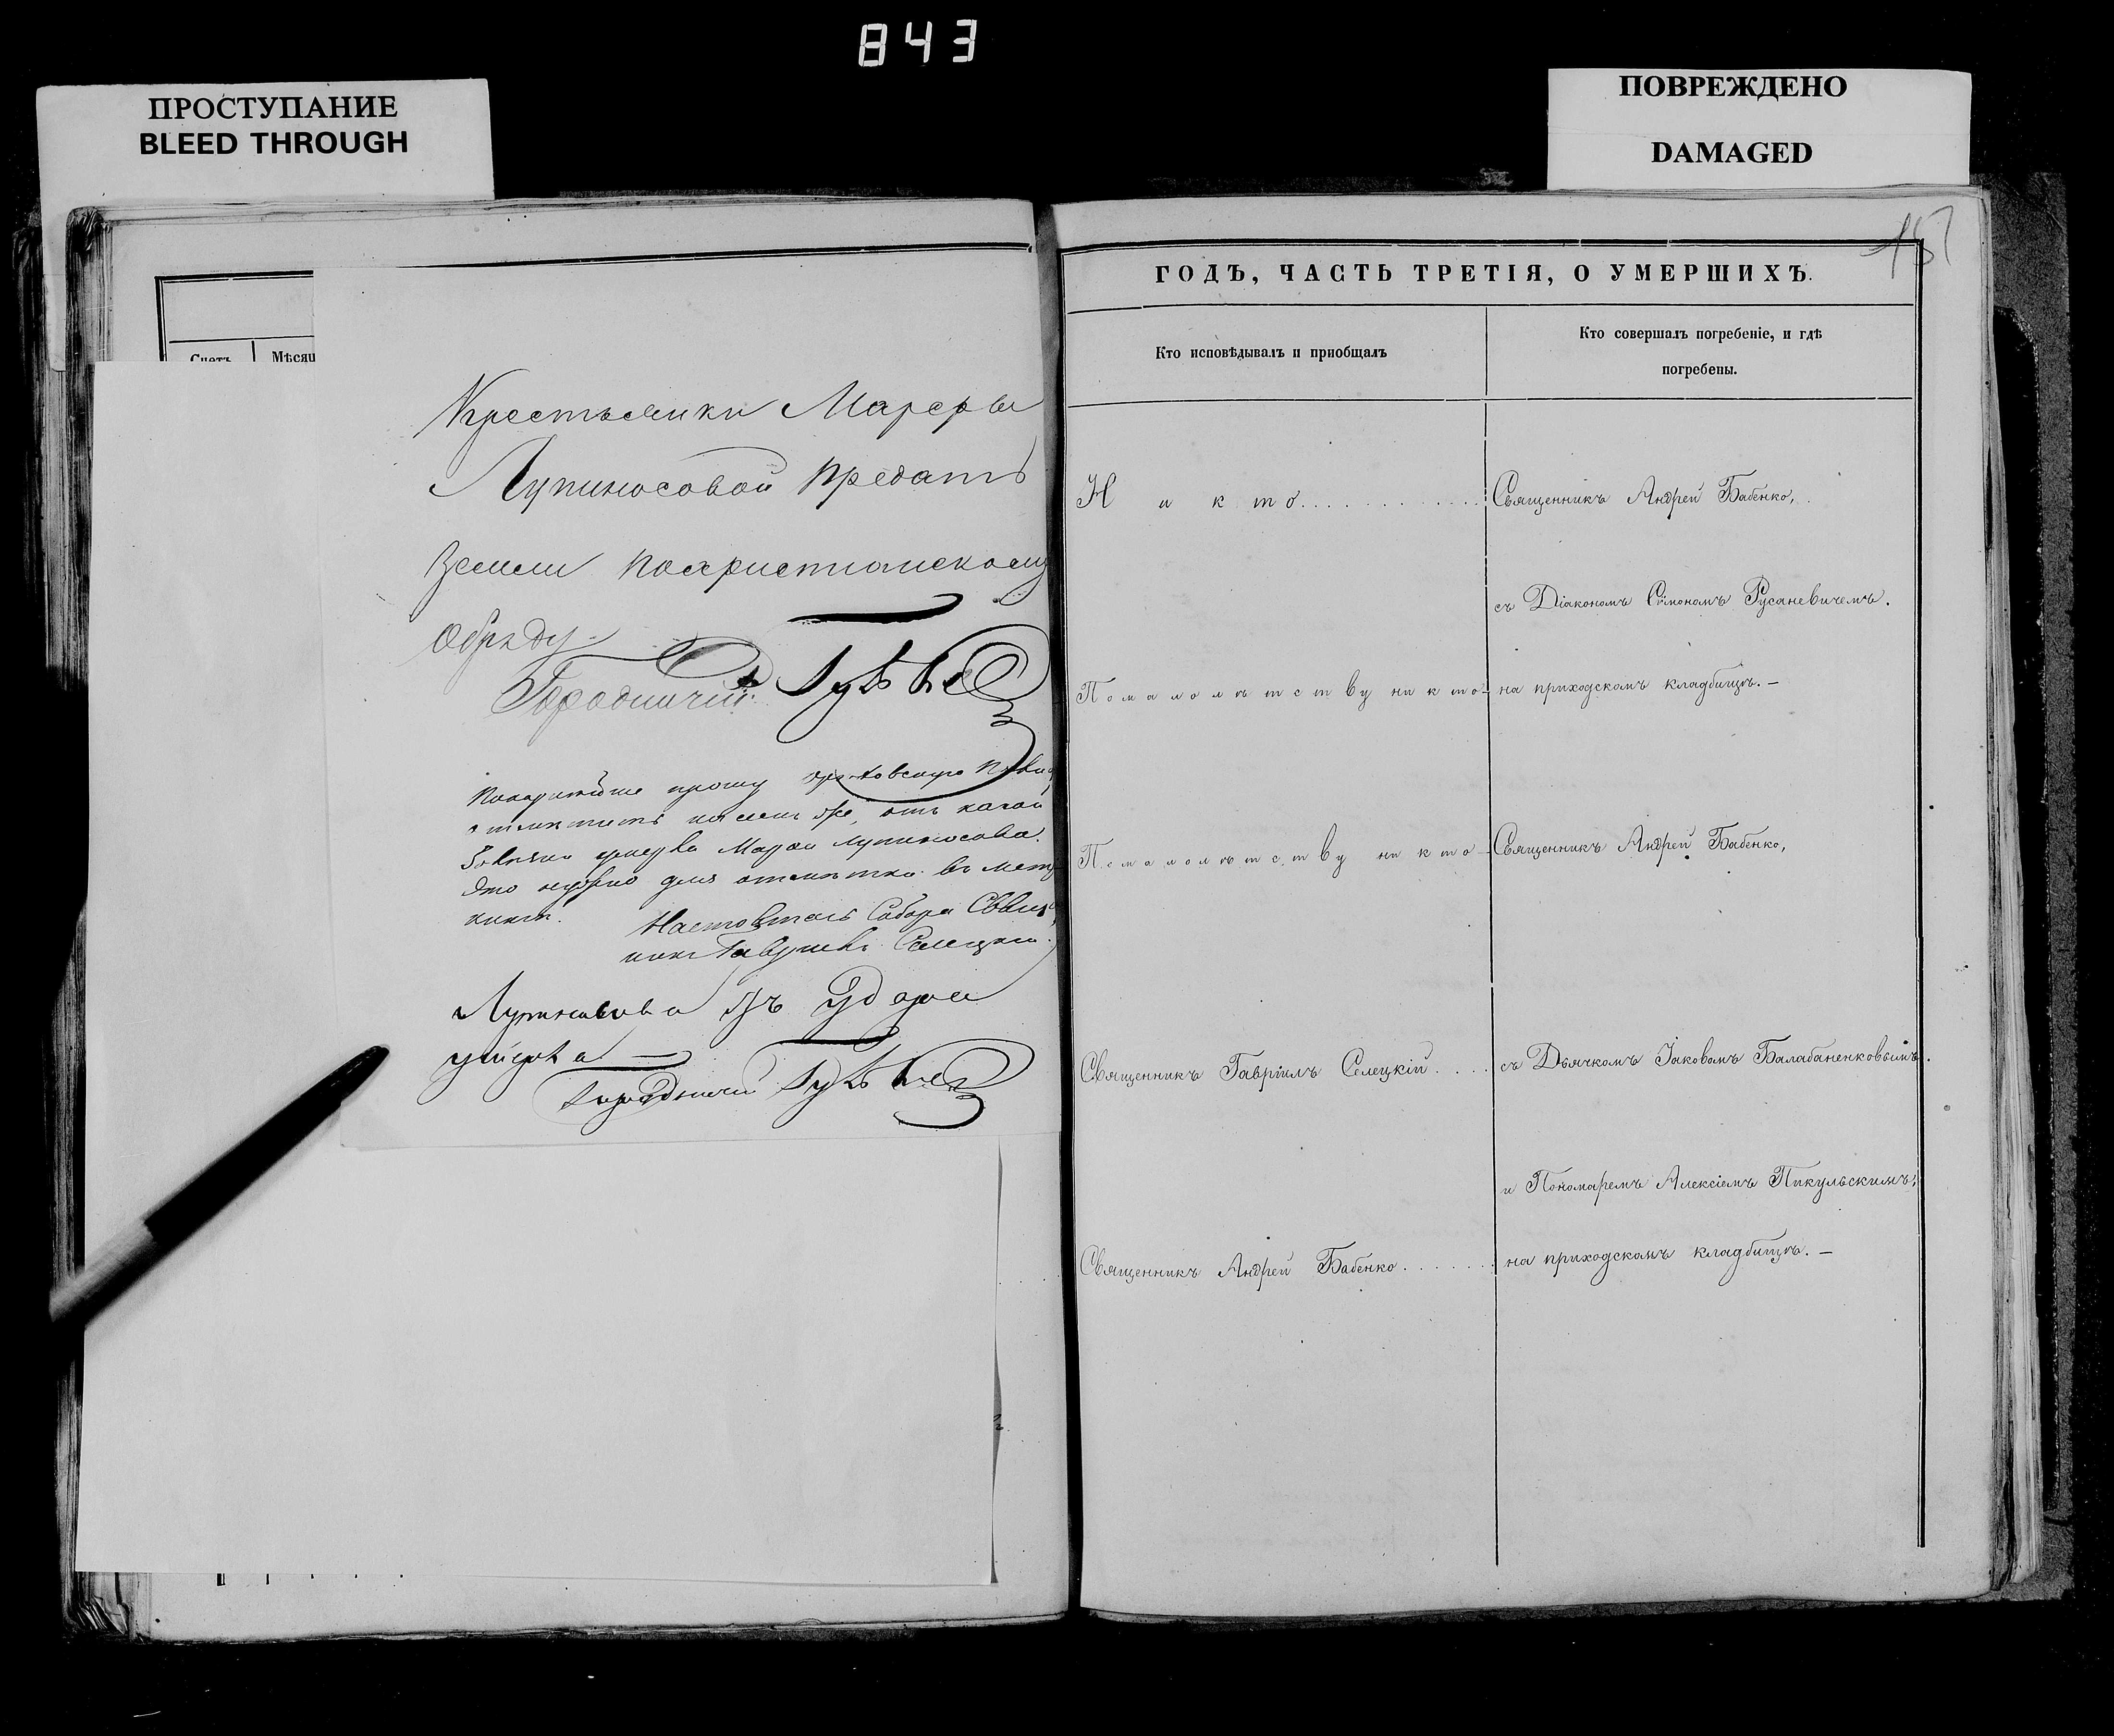 843
ПРОСТУПАНИЕ
BLEED THROUGH
ПОВРЕЖДЕНО
DAMAGED
Счетъ Мѣсяц
Крестьянки Марфы
Лупиносовой предать
Земли похристианскому
обряду
Городничий
Покорнейше прошу
отметить на сем же, отъ какой
Лупиносова.
Это нужно для отметки въ метр
книги.
Настоятель Собора Свящ
никъ Гавриилъ Селецкій.
Лупиносова отъ удара
умерла
Городничий
157
ГОДЪ, ЧАСТЬ ТРЕТІЯ, О УМЕРШИХЪ.
Кто исповѣдывалъ и пріобщалъ
Кто совершалъ погребеніе, и гдѣ
погребены.
Никто
Священникъ Андрей Бабенко,
съ Діакономъ Сімономъ Русаневичемъ.
Помалолѣтству никто
на приходскомъ кладбищѣ. —
Помалолѣтству никто
Священникъ Андрей Бабенко,
Священникъ Гавріилъ Селецкій
съ Дьячкомъ Іаковомъ Балабаненковымъ
и Пономаремъ Алексіемъ Пикульскимъ,
Священникъ Андрей Бабенко
на приходскомъ кладбищѣ. —